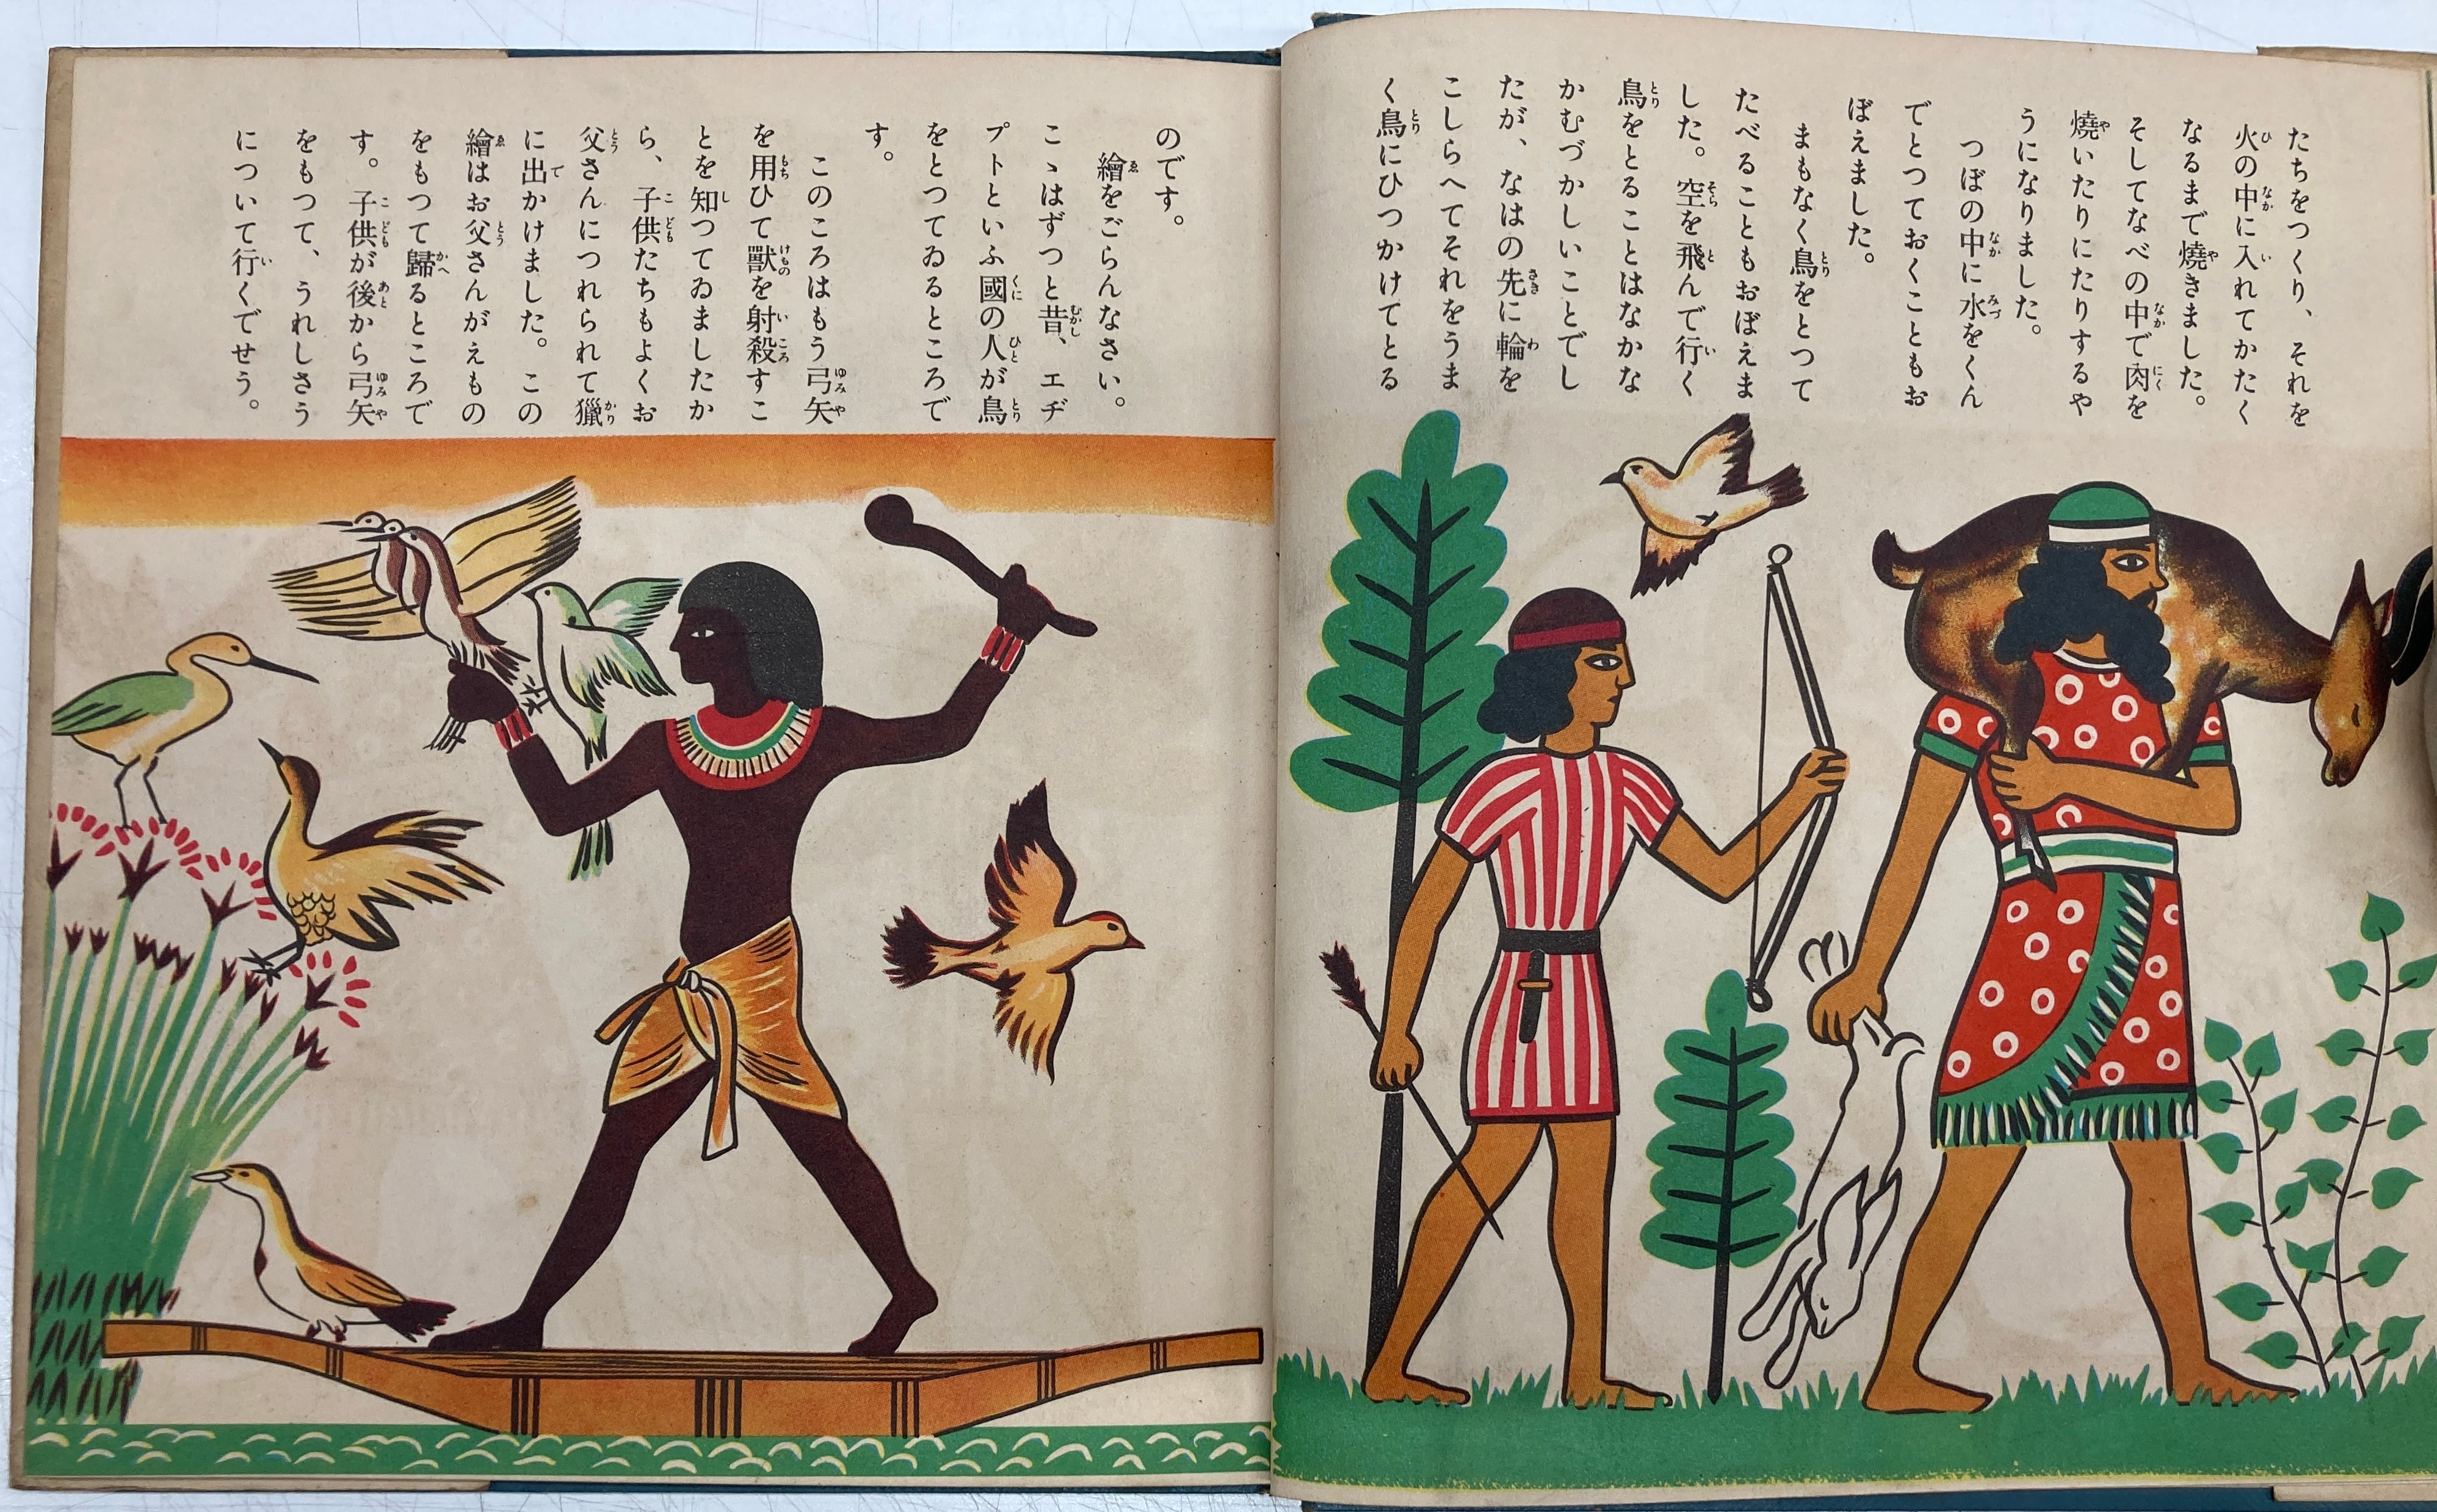 たちをつくり、それを
火の中に入れてかたく
なるまで燒きました。
そしてなべの中で肉を
燒いたりにたりするや
うになりました。
つぼの中に水をくん
でとつておくこともお
ぼえました。
まもなく鳥をとつて
たべることもおぼえま
した。空を飛んで行く
鳥をとることはなかな
かむづかしいことでし
たが、なはの先に輪を
こしらへてそれをうま
く鳥にひつかけてとる
のです。
繪をごらんなさい。
こゝはずつと昔、エヂ
プトといふ國の人が鳥
をとつてゐるところで
す。
このころはもう弓矢
を用ひて獸を射殺すこ
とを知つてゐましたか
ら、子供たちもよくお
父さんにつれられて獵
に出かけました。この
繪はお父さんがえもの
をもつて歸るところで
す。子供が後から弓矢
をもつて、うれしさう
について行くでせう。